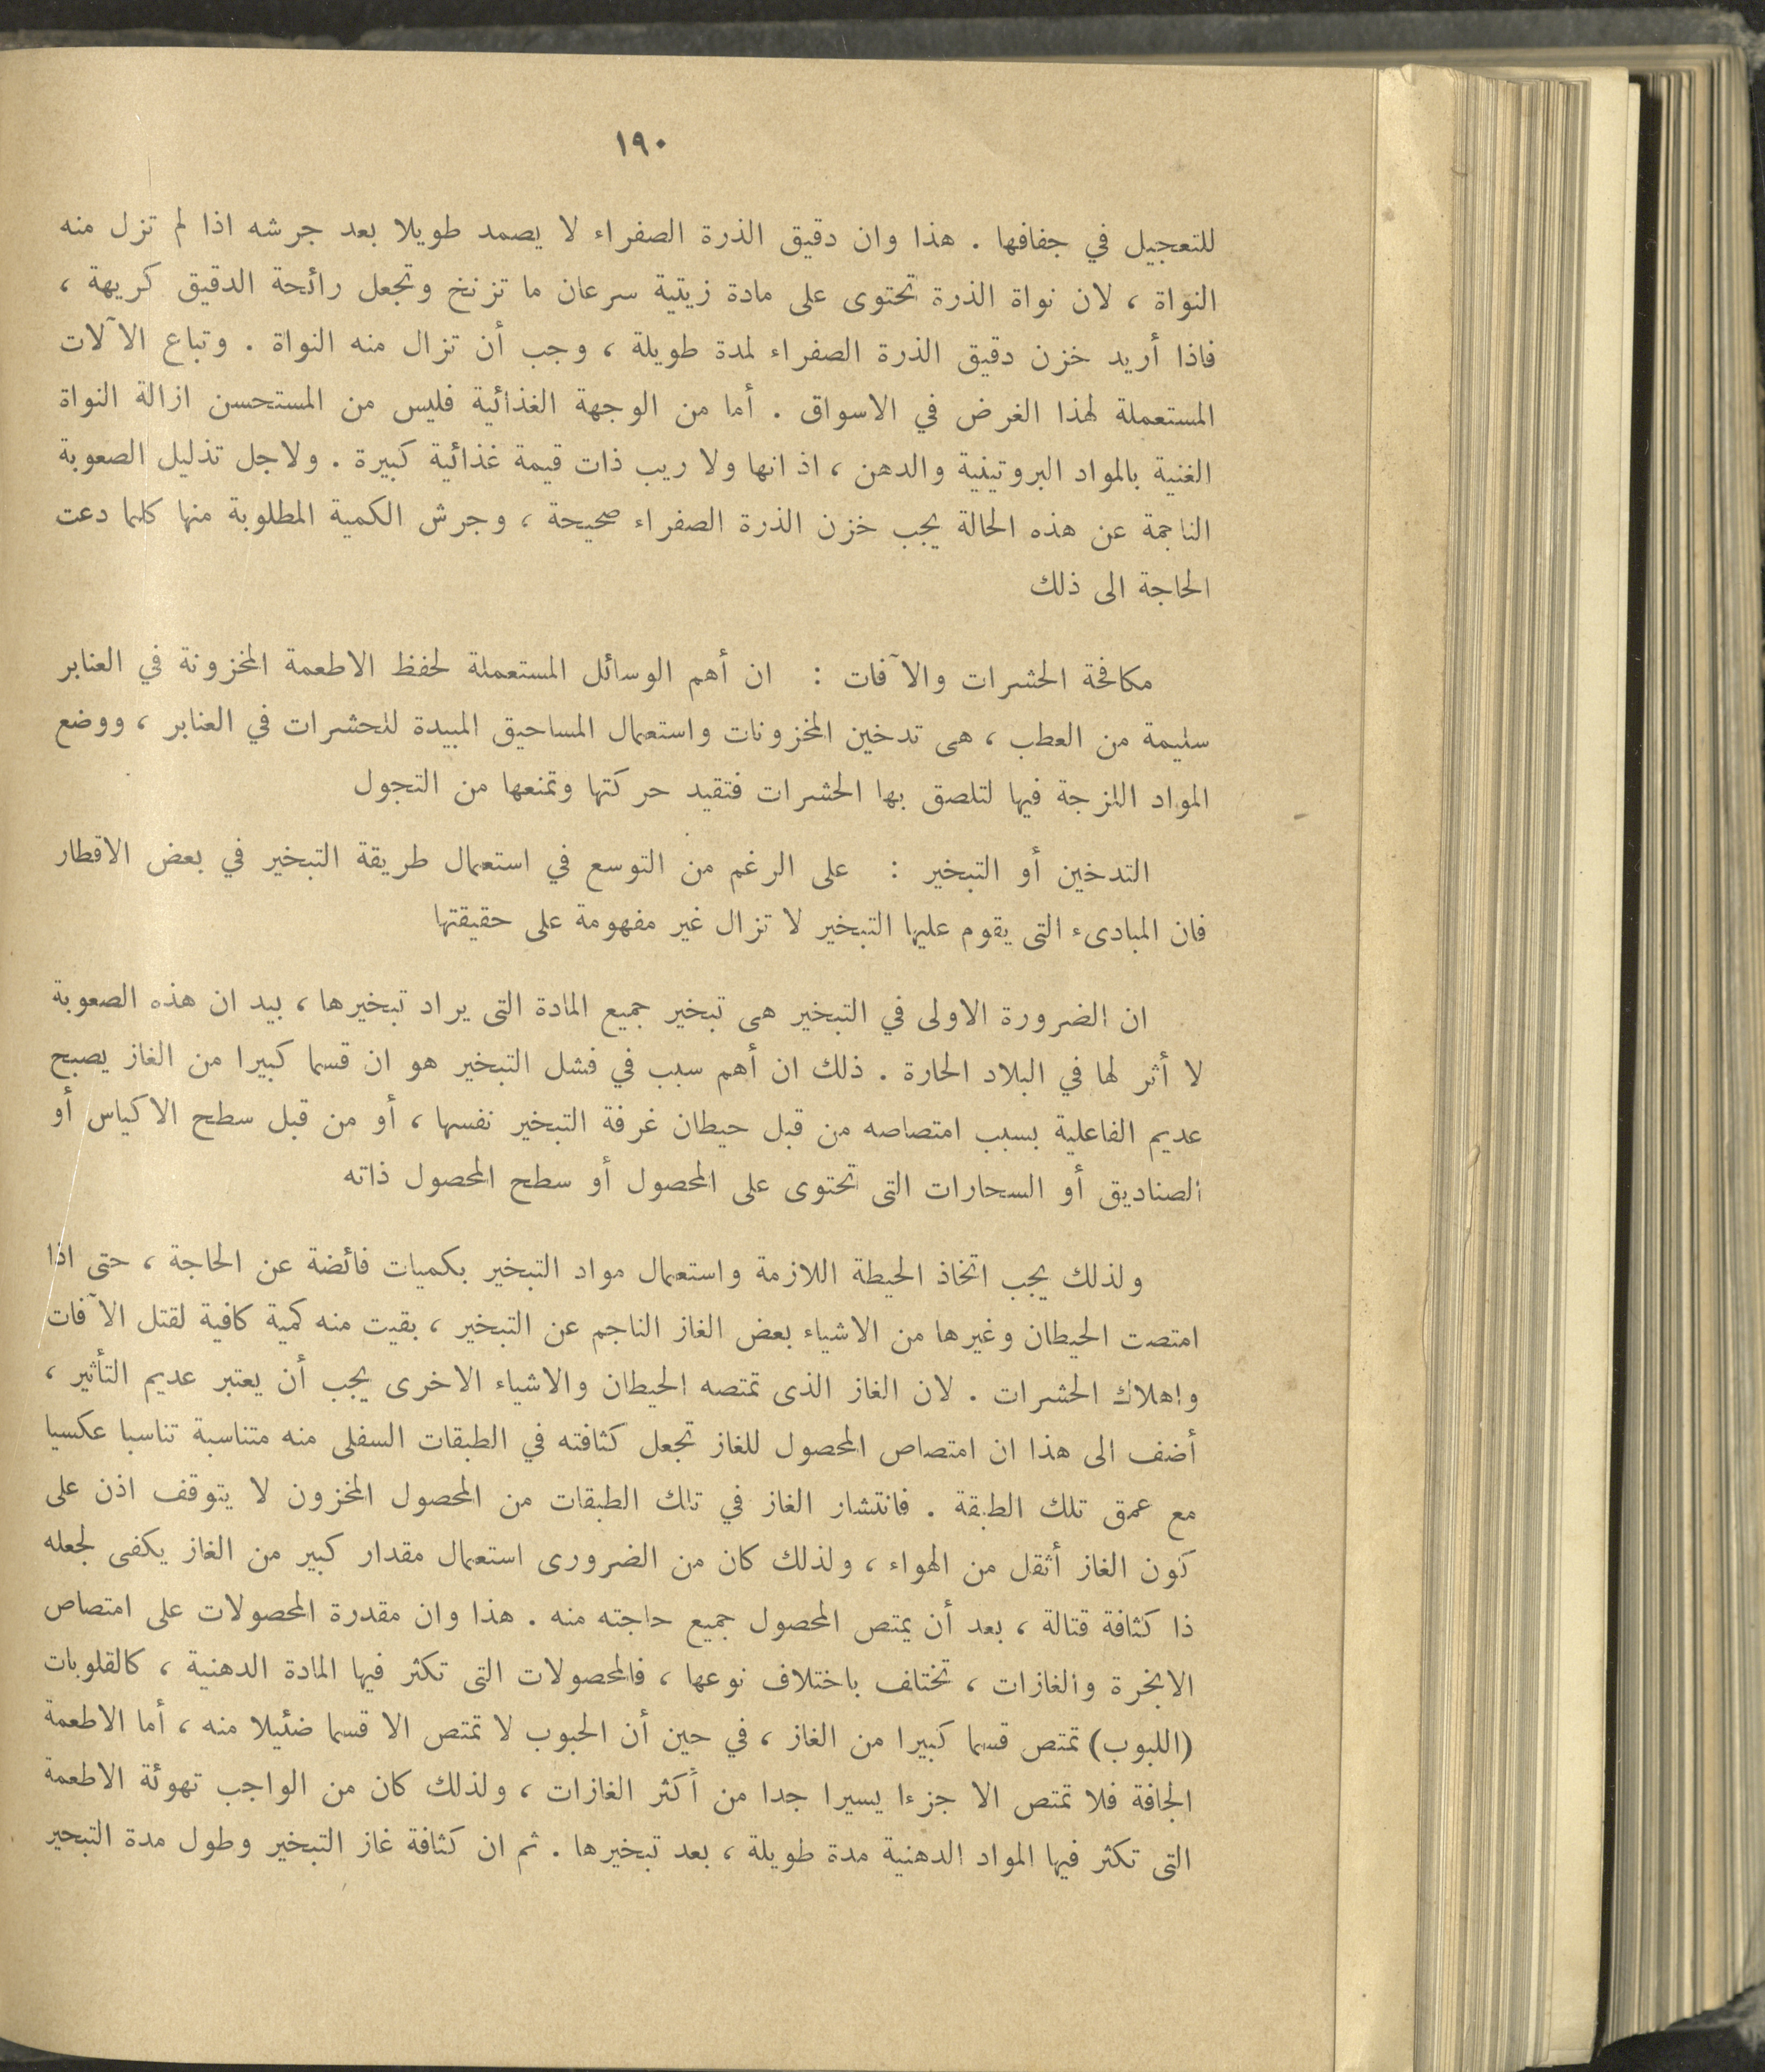 ١٩٠
للتعجيل في جفافها . هذا وان دقيق الذرة الصفراء لا يصمد طويلا بعد جرشه اذا لم تزل منه
النواة ، لان نواة الذرة تحتوى على مادة زيتية سرعان ما تزنخ وتجعل رائحة الدقيق كريهة ،
فاذا أريد خزن دقيق الذرة الصفراء لمدة طويلة ، وجب أن تزال منه النواة . وتباع الآلات
المستعملة لهذا الغرض في الاسواق . أما من الوجهة الغذائية فليس من المستحسن ازالة النواة
الغنية بالمواد البروتينية والدهن ، اذ انها ولا ريب ذات قيمة غذائية كبيرة . ولاجل تذليل الصعوبة
الناجمة عن هذه الحالة يجب خزن الذرة الصفراء صحيحة ، وجرش الكمية المطلوبة منها كلما دعت
الحاجة الى ذلك
مكافحة الحشرات والآفات : ان أهم الوسائل المستعملة لحفظ الاطعمة المخزونة في العنابر
سليمة من العطب ، هى تدخين المخزونات واستعمال المساحيق المبيدة للحشرات في العنابر ، ووضع
المواد اللزجة فيها لتلصق بها الحشرات فتقيد حركتها وتمنعها من التجول
التدخين أو التبخير : على الرغم من التوسع في استعمال طريقة التبخير في بعض الاقطار
فان المبادىء التى يقوم عليها التبخير لا تزال غير مفهومة على حقيقتها
ان الضرورة الاولى في التبخير هى تبخير جميع المادة التى يراد تبخيرها ، بيد ان هذه الصعوبة
لا أثر لها في البلاد الحارة . ذلك ان أهم سبب في فشل التبخير هو ان قسما كبيرا من الغاز يصبح
عديم الفاعلية بسبب امتصاصه من قبل حيطان غرفة التبخير نفسها ، أو من قبل سطح الاكياس أو
الصناديق أو السحارات التى تحتوى على المحصول أو سطح المحصول ذاته
ولذلك يجب اتخاذ الحيطة اللازمة واستعمال مواد التبخير بكميات فائضة عن الحاجة ، حتى اذا
امتصت الحيطان وغيرها من الاشياء بعض الغاز الناجم عن التبخير ، بقيت منه كمية كافية لقتل الآفات
واهلاك الحشرات . لان الغاز الذى تمتصه الحيطان والاشياء الاخرى يجب أن يعتبر عديم التأثير ،
أضف الى هذا ان امتصاص المحصول للغاز تجعل كثافته في الطبقات السفلى منه متناسبة تناسبا عكسيا
مع عمق تلك الطبقة . فانتشار الغاز في تلك الطبقات من المحصول المخزون لا يتوقف اذن على
كون الغاز أثقل من الهواء ، ولذلك كان من الضرورى استعمال مقدار كبير من الغاز يكفى لجعله
ذا كثافة قتالة ، بعد أن يمتص المحصول جميع حاجته منه . هذا وان مقدرة المحصولات على امتصاص
الابخرة والغازات ، تختلف باختلاف نوعها ، فالمحصولات التى تكثر فيها المادة الدهنية ، كالقلوبات
(اللبوب) تمتص قسما كبيرا من الغاز ، في حين أن الحبوب لا تمتص الا قسما ضئيلا منه ، أما الاطعمة
الجافة فلا تمتص الا جزءا يسيرا جدا من أكثر الغازات ، ولذلك كان من الواجب تهوئة الاطعمة
التى تكثر فيها المواد الدهنية مدة طويلة ، بعد تبخيرها . ثم ان كثافة غاز التبخير وطول مدة التبخير